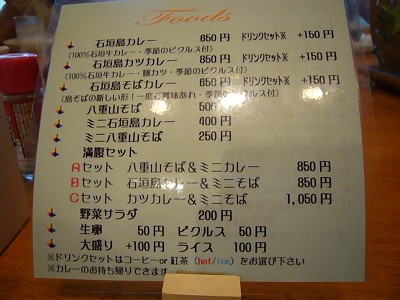 Foods
石垣島カレー 650円 ドリンクセット※ +150円
(100%石垣牛カレー・季節のピクルス付)
石垣島カツカレー 850円 ドリンクセット※ +150円
(100%石垣牛カレー・豚カツ・季節のピクルス付)
石垣島そばカレー 850円 ドリンクセット※ +150円
(島そばの新しい形!一度ご賞味あれ・季節のピクルス付)
八重山そば 500円
ミニ石垣島カレー 400円
ミニ八重山そば 250円
満腹セット
Aセット 八重山そば&ミニカレー 850円
Bセット 石垣島カレー&ミニそば 850円
Cセット カツカレー&ミニそば 1,050円
野菜サラダ 200円
生卵 50円 ピクルス 50円
大盛り +100円 ライス 100円
※ドリンクセットはコーヒーor紅茶(hot/ice)をお選び下さい
※カレーのお持ち帰りできます